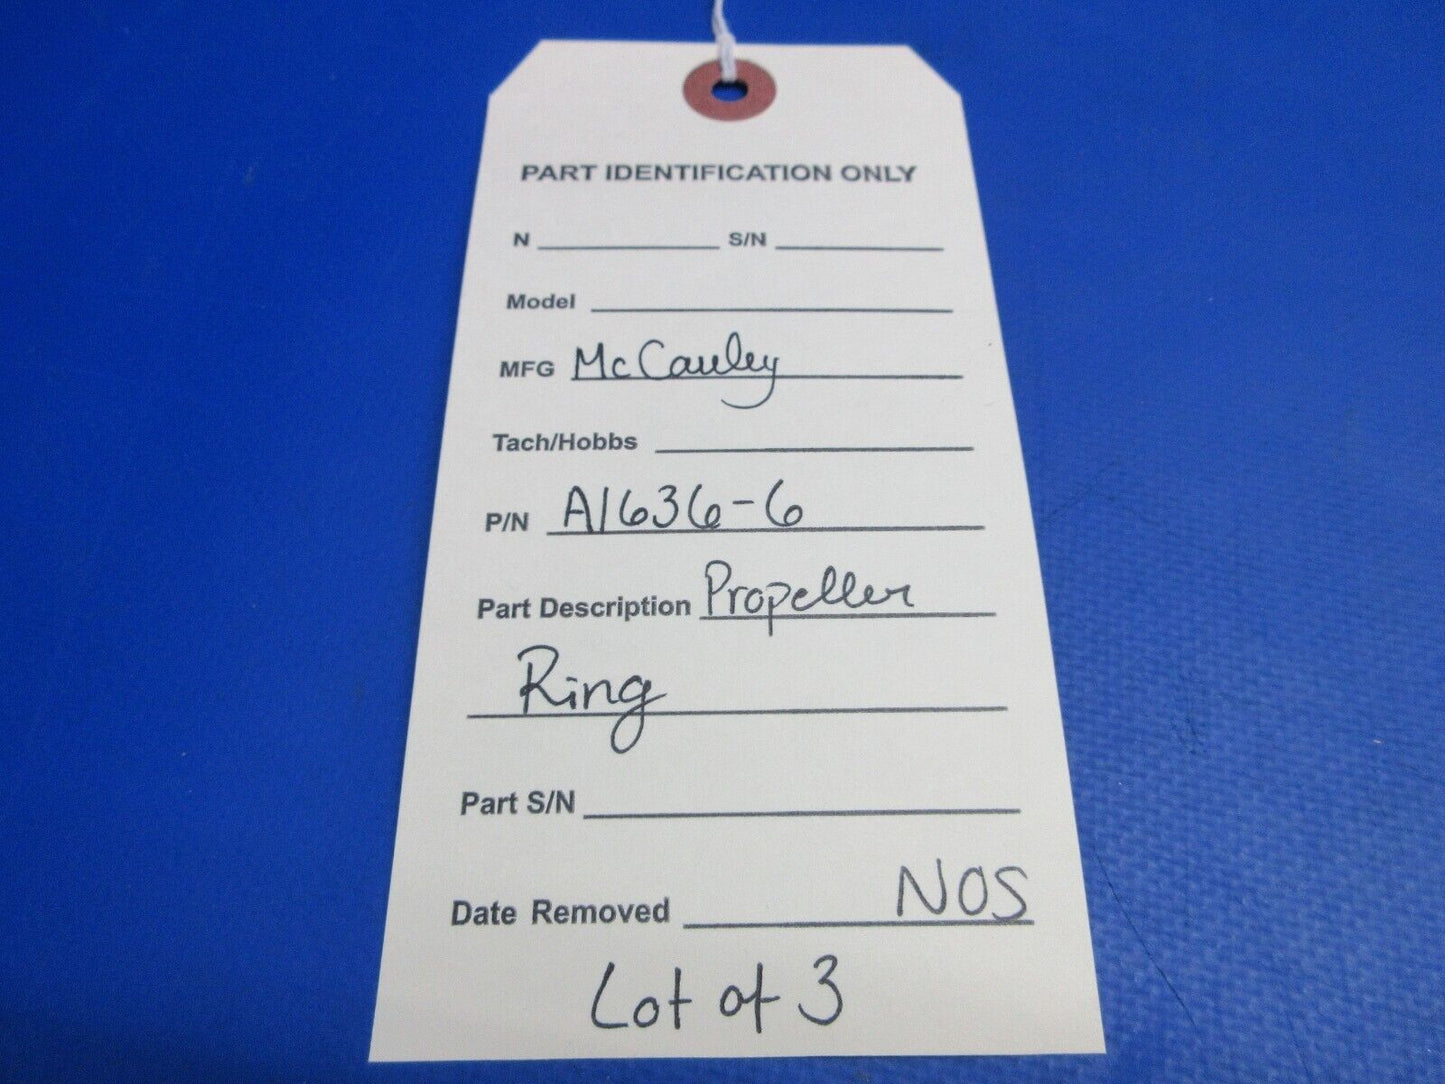 PART IDENTIFICATION ONLY
N S/N
Model
MFG McCauley
Tach/Hobbs
P/N A1636-6
Part Description Propeller
Ring
Part S/N
Date Removed NOS
Lot of 3